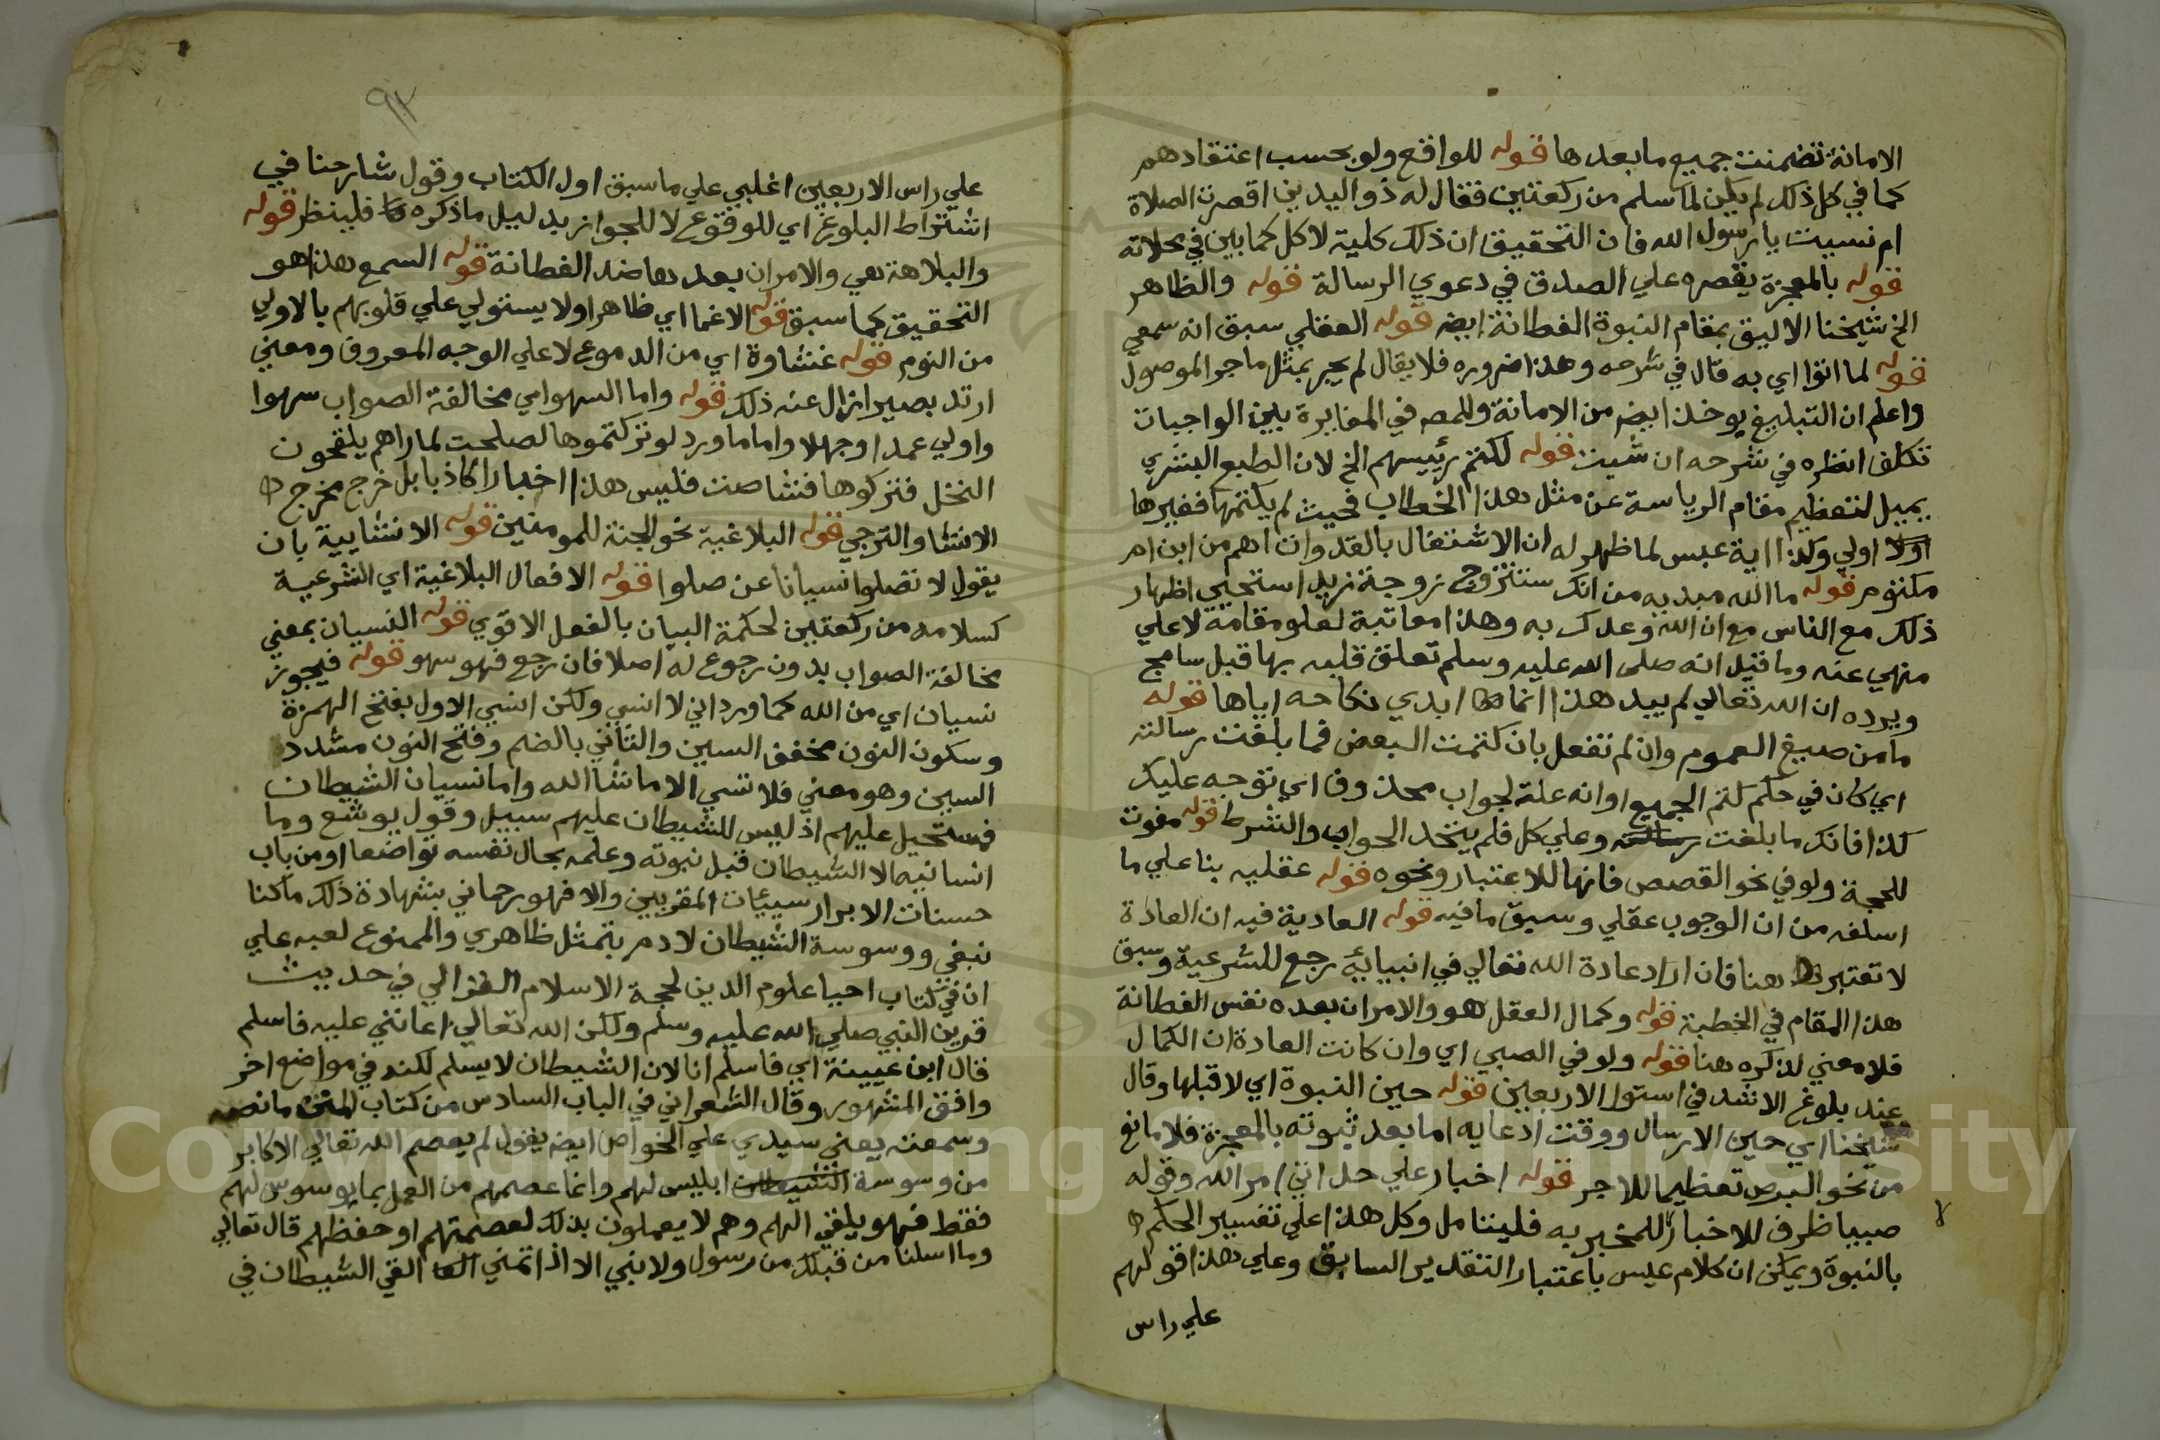 الامانة تضمنت جميع ما بعدها قوله للواقع ولو بحسب اعتقادهم
كما في كل ذلك لم يكن لما سلم من ركعتين فقال له ذو اليدين اقصرت الصلاة
ام نسيت يا رسول الله فان التحقيق ان ذلك كلية لا كل كما بين في محلاته
قوله بالمعجزة يقصره علي الصدق في دعوي الرسالة قوله والظاهر
الخ شيخنا الاليق بمقام النبوة الفطانة ايضه قوله العقلي سبق انه سمعي
قوله لما اتوا اي به قال في شرحه وهذا ضروره فلا يقال لم يجر بمثل ما جر الموصول
واعلم ان التبليغ يوخذ ايضه من الامانة وللمصه في المغايرة بين الواجبات
تكلف انظره في شرحه ان شيت قوله لكتم رئيسهم الخ لان الطبع البشري
يميل لتعظيم مقام الرياسة عن مثل هذا الخطاب فحيث لم يكتمها فغيرها
اولي وكذا اية عبس لما ظهر له ان الاشتغال بالقد وات اهم من ابن ام
مكتوم قوله ما الله مبديه من انك ستتزوج زوجة زيد استحيي اظهار
ذلك مع الناس مع ان الله وعدك به وهذا معاتبة لعلو مقامة لا علي
منهي عنه وما قيل انه صلي الله عليه وسلم تعلق قلبه بها قبل سامج
ويرده ان الله تعالي لم يبد هذا انما ابدي نكاحه اياها قوله
ما من صيغ العموم وان لم تفعل بان كتمت البعض فما بلغت رسالته
اي كان في حكم كتم الجميع او انه علة لجواب محذوف اي توجه عليك
كذا فانك ما بلغت رسالته وعلي كل فلم يتحد الجواب والشرط قوله مفوت
للحجة ولو في نحو القصص فانها للاعتبار ونحوه قوله عقليه بنا علي ما
اسلفه من ان الوجوب عقلي وسبق ما فيه قوله العادية فيه ان العادة
لا تعتبر هنا فان اراد عادة الله تعالي في انبيائه رجع للشرعية وسبق
هذا المقام في الخطبة قوله وكمال العقل هو والامران بعده نفس الفطانة
فلا معني لذكره هنا قوله ولو في الصبي اي وان كانت العادة ان الكمال
عند بلوغ الاشد في استوا الاربعين قوله حين النبوة اي لا قبلها وقال
شيخنا اي حين الارسال ووقت ادعايه اما بعد ثبوته بالمعجزة فلا مانع
من نحو البرص تعظيما للاجر قوله اخبار علي حد اتي امر الله وقوله
صبيا ظرف للاخبار للمخبر به فليتامل وكل هذا علي تفسير الحكم
بالنبوة ويمكن ان كلام عيس باعتبار التقدير السابق وعلي هذا قولهم
علي راس
٩٢
علي راس الاربعين اغلبي علي ما سبق اول الكتاب وقول شارحنا في
اشتراط البلوغ اي للوقوع لا للجواز بدليل ما ذكره فلينظر قوله
والبلاهة هي والامران بعدها ضد الفطانة قوله السمع هذا هو
التحقيق كما سبق قوله الاغما اي ظاهرا ولا يستولي علي قلوبهم بالاولي
من النوم قوله غشاوة اي من الدموع لا علي الوجه المعروف ومعني
ارتد بصيرا زال عنه ذلك قوله واما السهو اي مخالفة الصواب سهوا
واولي عمدا وجهلا واما ما ورد لو تركتموها لصلحت لما راهم يلقحون
النخل فتركوها فشاصت فليس هذا اخبارا كاذبا بل خرج مخرج
الانشا والترجي قوله البلاغية نحو الجنة للمومنين قوله الانشايية بان
يقول لا تصلوا نسيانا عن صلوا قوله الافعال البلاغية اي الشرعية
كسلامه من ركعتين لحكمة البيان بالفعل الاقوي قوله النسيان بمعني
مخالفة الصواب بدون رجوع له اصلا فان رجع فهو سهو قوله فيجوز
نسيان اي من الله كما ورد اني لا انسي ولكن انسي الاول بفتح الهمزة
وسكون النون مخفف السين والثاني بالضم وفتح النون مشدد
السين وهو معني فلا تنسي الا ما شا الله واما نسيان الشيطان
فمستحيل عليهم اذ ليس للشيطان عليهم سبيل وقول يوشع وما
انسانيه الا الشيطان قبل نبوته وعلمه بحال نفسه تواضعا او من باب
حسنات الابرار سييات المقربين والا فهو رحماني بشهادة ذلك ما كنا
نبغي ووسوسة الشيطان لادم بتمثل ظاهري والممنوع لعبه علي
ان في كتاب احيا علوم الدين لحجة الاسلام الغزالي في حديث
قرين النبي صلي الله عليه وسلم ولكن الله تعالي اعانني عليه فاسلم
قال ابن عيينة اي فاسلم انا لان الشيطان لا يسلم لكنه في مواضع اخر
وافق المشهور وقال الشعراني في الباب السادس من كتاب المنن ما نصه
وسمعته يعني سيدي علي الخواص ايضه يقول لم يعصم الله تعالي الاكابر
من وسوسة الشيطان ابليس لهم وانما عصمهم من العمل بما يوسوس لهم
فقط فهو يلقي اليهم وهم لا يعملون بذلك لعصمتهم او حفظهم قال تعالي
وما اسلنا من قبلك من رسول ولا نبي الا اذا تمني القي الشيطان في
Copyright © King Saud University